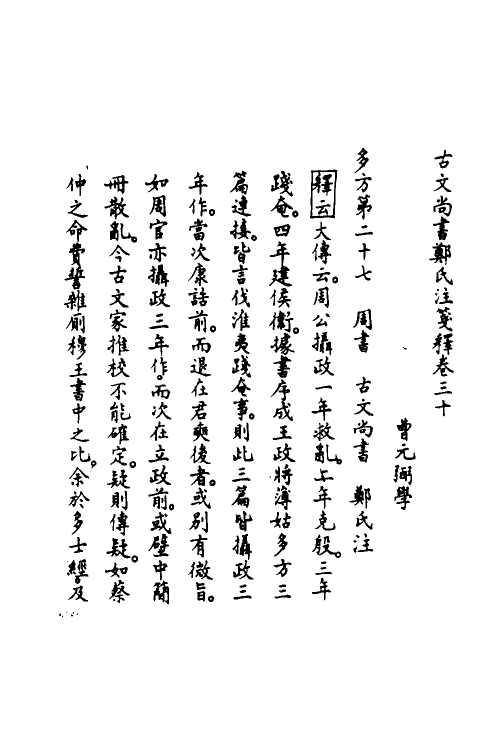 古文尚書鄭氏注箋釋卷三十
曹元弼學
多方第二十七 周書 古文尚書 鄭氏注
釋云大傳云。周公攝政一年救亂。二年克殷。三年
踐奄。四年建侯衞。據書序成王政將薄姑多方三
篇連接。皆言伐淮夷踐奄事。則此三篇皆攝政三
年作。當次康誥前。而退在君奭後者。或別有微旨。
如周官亦攝政三年作。而次在立政前。或壁中簡
冊散亂。今古文家推校不能確定。疑則傳疑。如蔡
仲之命費誓雜廁穆王書中之比。余於多士經及